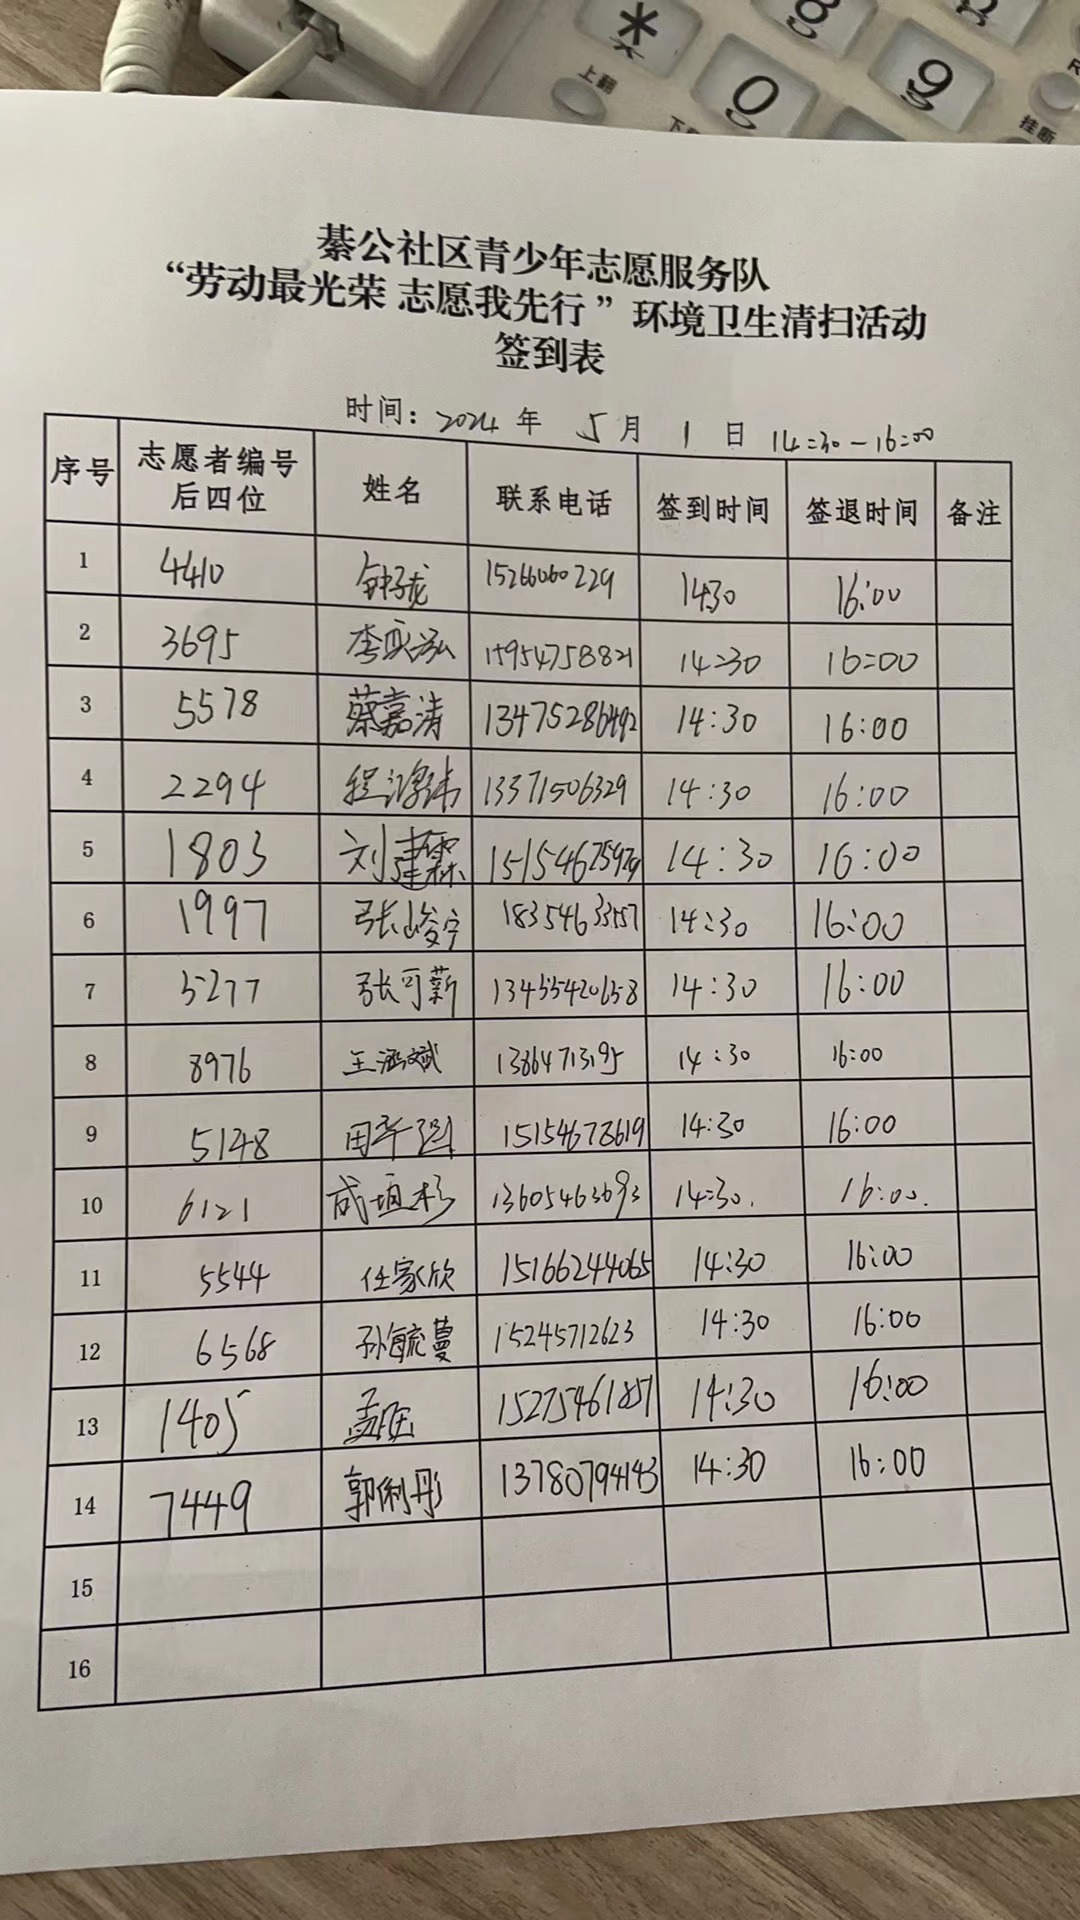 *
0
8
9
上翻
挂断
綦公社区青少年志愿服务队
“劳动最光荣 志愿我先行 ”环境卫生清扫活动
签到表
时间: 2024 年 5 月 1 日 14:30-16:00
序号 志愿者编号后四位 姓名 联系电话 签到时间 签退时间 备注
1 4410 钟子龙 15266060229 1430 16:00
2 3695 李奕泓 15954758821 14:30 16:00
3 5578 蔡嘉清 13475286492 14:30 16:00
4 2294 程鸿祎 13371506329 14:30 16:00
5 1803 刘建霖 14:30 16:00
6 1997 张峻宁 18354633557 14:30 16:00
7 5277 张可薪 13455420658 14:30 16:00
8 8976 王涵斌 13864713195 14:30 16:00
9 5148 15154678619 14:30 16:00
10 6121 13605463693 14:30. 16:00.
11 5544 任家欣 15166244065 14:30 16:00
12 6568 孙毓蔓 15245712623 14:30 16:00
13 1405 15275461857 14:30 16:00
14 7449 郭俐彤 13780794143 14:30 16:00
15
16